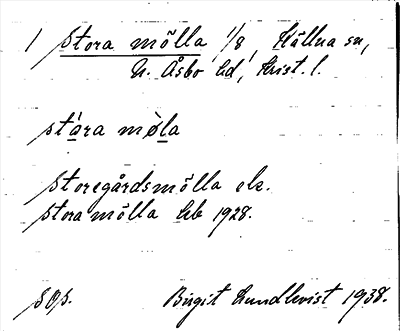 1 Stora mölla, 1/8, Hällna sn,
N. Åsbo hd, Krist. l.
stára mø̀la
Storegårdsmölla ek.
Stora mölla hb 1928.
sop.
Birgit Lundkvist 1938.